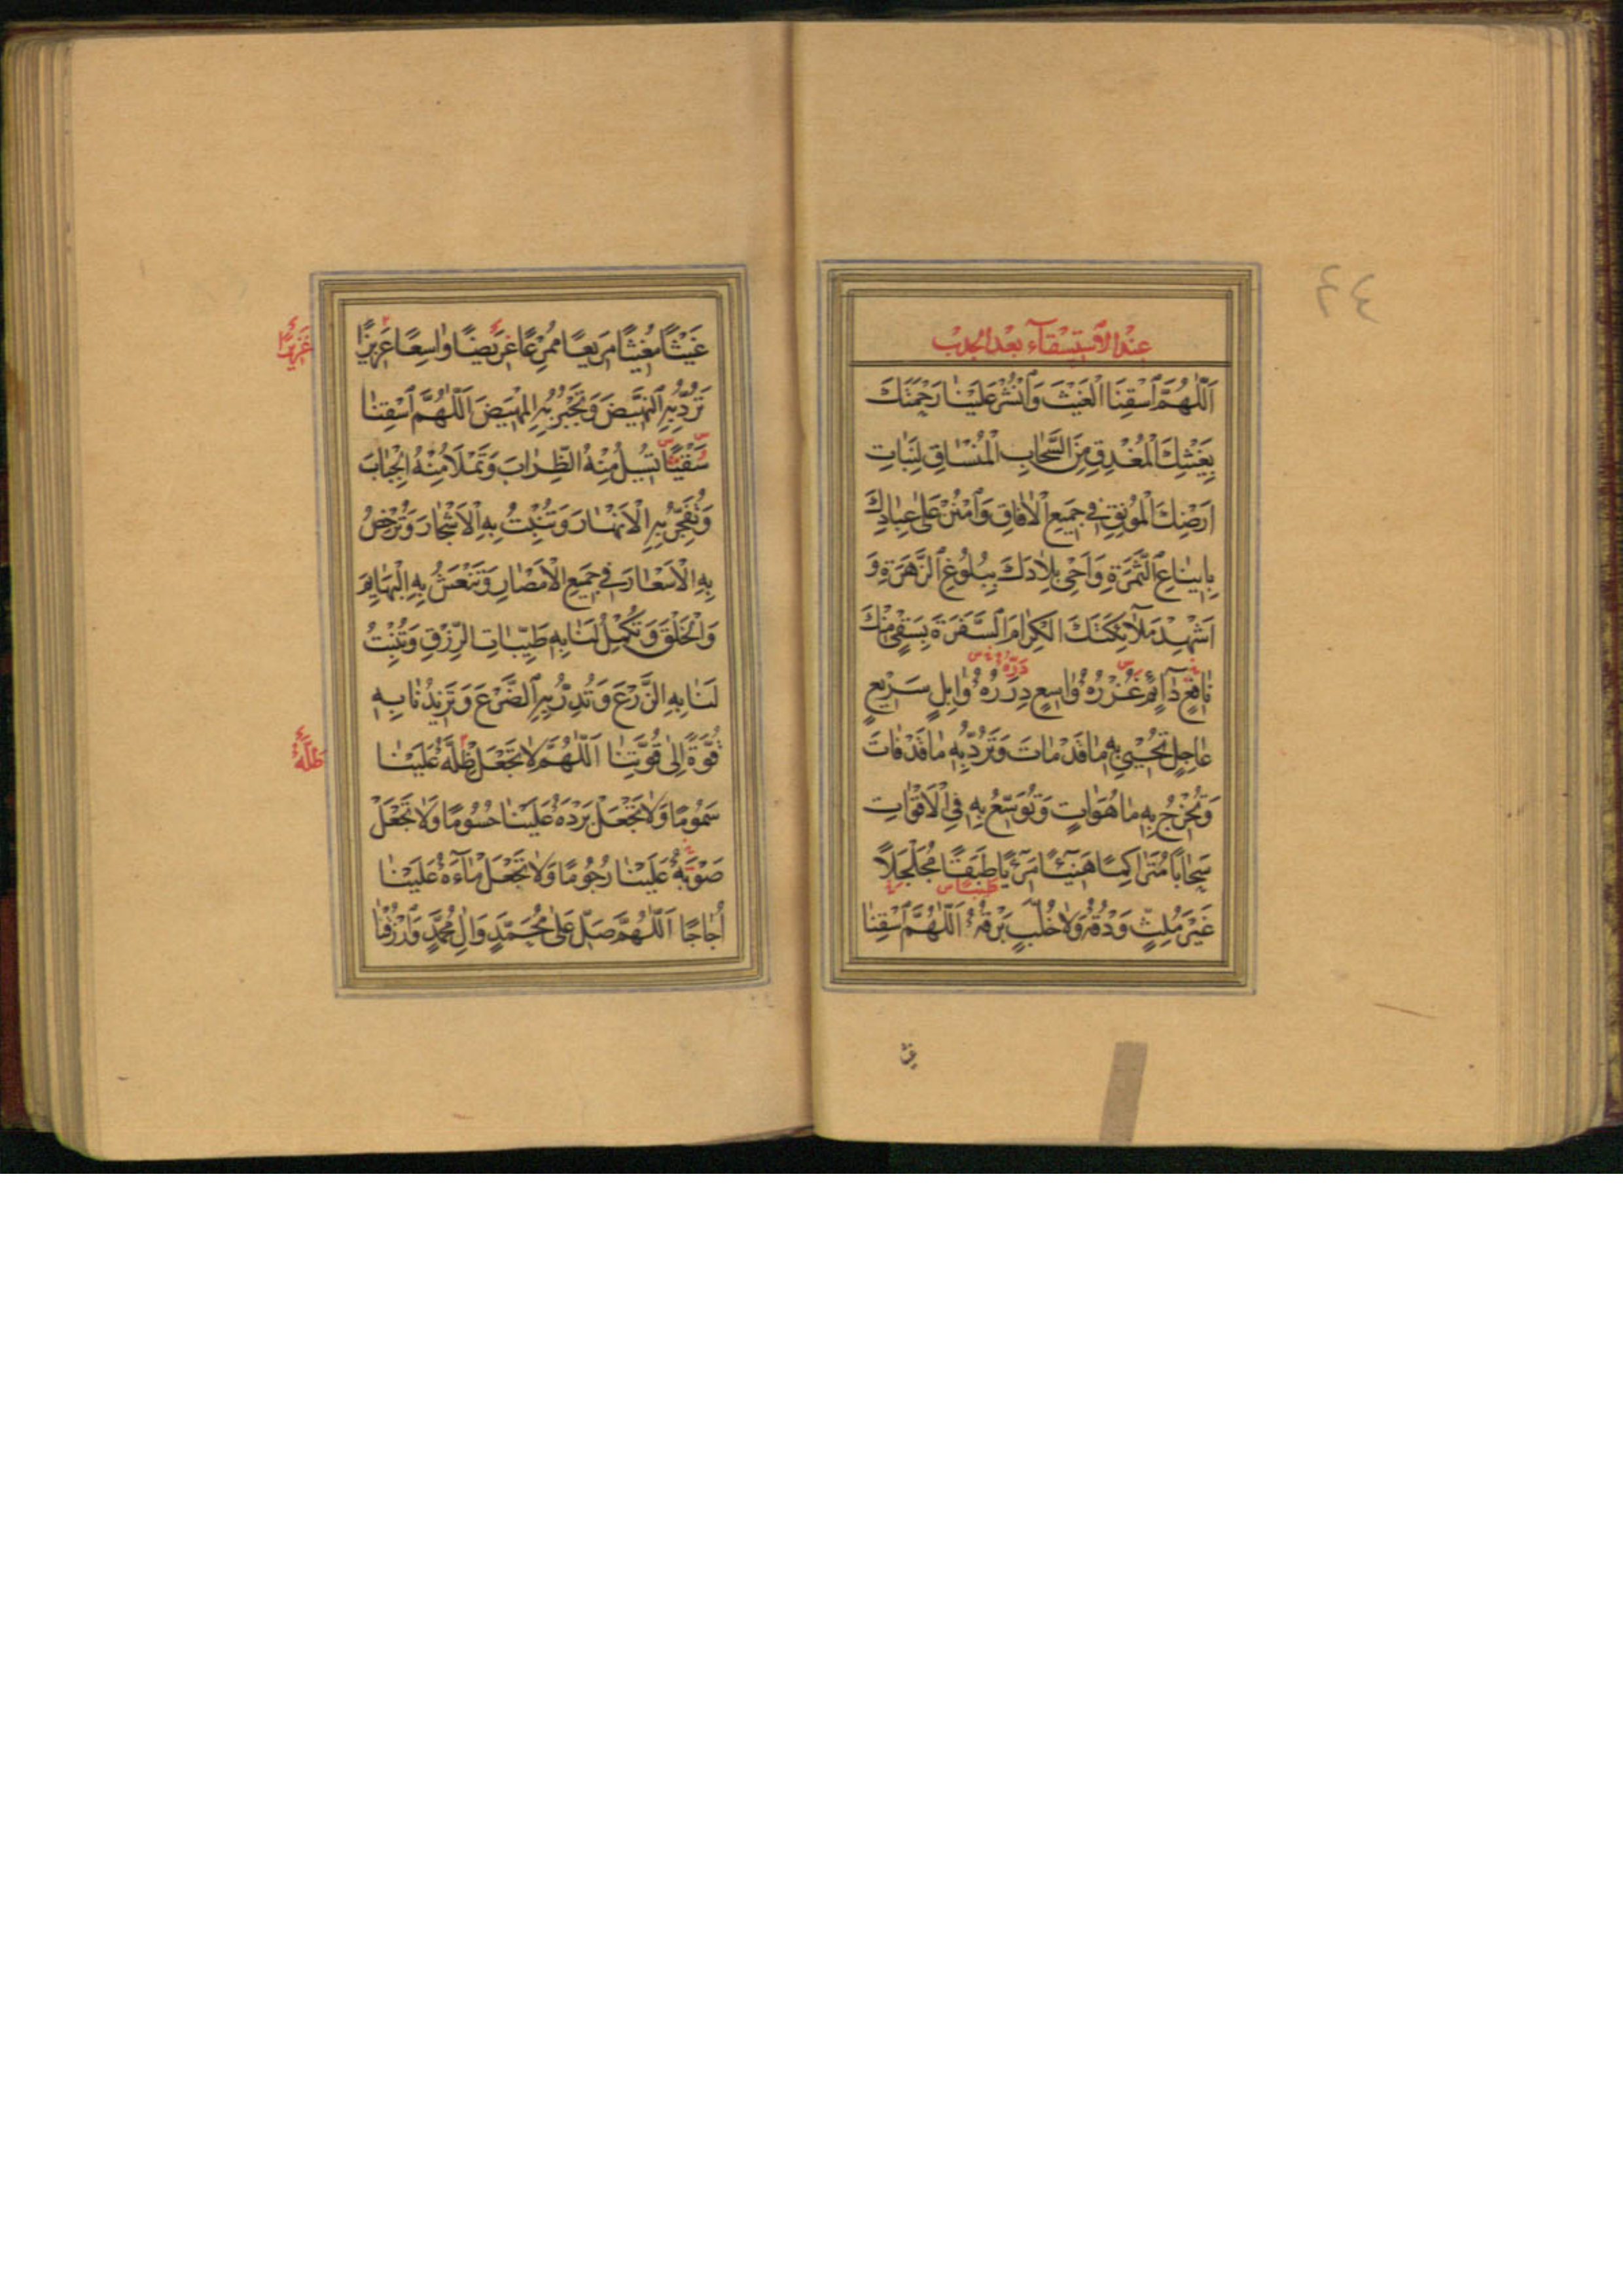 ٤٤
عِنْدَ الْاِسْتِسْقَآءِ بَعْدَ الْجَدْبِ
اَللّٰهُمَّ اسْقِنَا الْغَيْثَ وَانْشُرْ عَلَيْنَا رَحْمَتَكَ
بِغَيْثِكَ الْمُغْدِقِ مِنَ السَّحَابِ الْمُنْسَاقِ لِنَبَاتِ
اَرْضِكَ الْمُونِقِ فِي جَمِيعِ الْاٰفَاقِ وَامْنُنْ عَلٰى عِبَادِكَ
بِاِينَاعِ الثَّمَرَةِ وَاَحْيِ بِلَادَكَ بِبُلُوغِ الزَّهَرَةِ وَ
اَشْهِدْ مَلَآئِكَتَكَ الْكِرَامَ السَّفَرَةَ بِسَقْيٍ مِنْكَ
نَافِعٍ دَآئِمٍ غُزْرُهُ وَاسِعٍ دِرَرُهُ وَابِلٍ سَرِيعٍ
دَرُّهُ
عَاجِلٍ تُحْيِي بِهِ مَا قَدْ مَاتَ وَتَرُدُّ بِهِ مَا قَدْ فَاتَ
وَتُخْرِجُ بِهِ مَا هُوَ اٰتٍ وَتُوَسِّعُ بِهِ فِي الْاَقْوَاتِ
سَحَابًا مُتَرَاكِمًا هَنِيئًا مَرِيئًا طَبَقًا مُجَلْجَلًا
غَيْرَ مُلِثٍّ وَدْقُهُ وَلَا خُلَّبٍ بَرْقُهُ اَللّٰهُمَّ اسْقِنَا
غَيْثًا مُغِيثًا مَرِيعًا مُمْرِعًا عَرِيضًا وَاسِعًا عَزِيزًا
غَزِيرًا
تَرُدُّ بِهِ النَّهِيضَ وَتَجْبُرُ بِهِ الْمَهِيضَ اَللّٰهُمَّ اسْقِنَا
سَقْيًا تُسِيلُ مِنْهُ الظِّرَابَ وَتَمْلَاُ مِنْهُ الْجِبَابَ
وَتُفَجِّرُ بِهِ الْاَنْهَارَ وَتُنْبِتُ بِهِ الْاَشْجَارَ وَتُرْخِصُ
بِهِ الْاَسْعَارَ فِي جَمِيعِ الْاَمْصَارِ وَتَنْعَشُ بِهِ الْبَهَايِمَ
وَالْخَلْقَ وَتُكْمِلُ لَنَا بِهِ طَيِّبَاتِ الرِّزْقِ وَتُنْبِتُ
لَنَا بِهِ الزَّرْعَ وَتُدِرُّ بِهِ الضَّرْعَ وَتَزِيدُنَا بِهِ
قُوَّةً اِلٰى قُوَّتِنَا اَللّٰهُمَّ لَا تَجْعَلْ ظِلَّهُ عَلَيْنَا
سَمُومًا وَلَا تَجْعَلْ بَرْدَهُ عَلَيْنَا حُسُومًا وَلَا تَجْعَلْ
صَوْبَهُ عَلَيْنَا رُجُومًا وَلَا تَجْعَلْ مَآءَهُ عَلَيْنَا
اُجَاجًا اَللّٰهُمَّ صَلِّ عَلٰى مُحَمَّدٍ وَاٰلِ مُحَمَّدٍ وَارْزُقْنَا